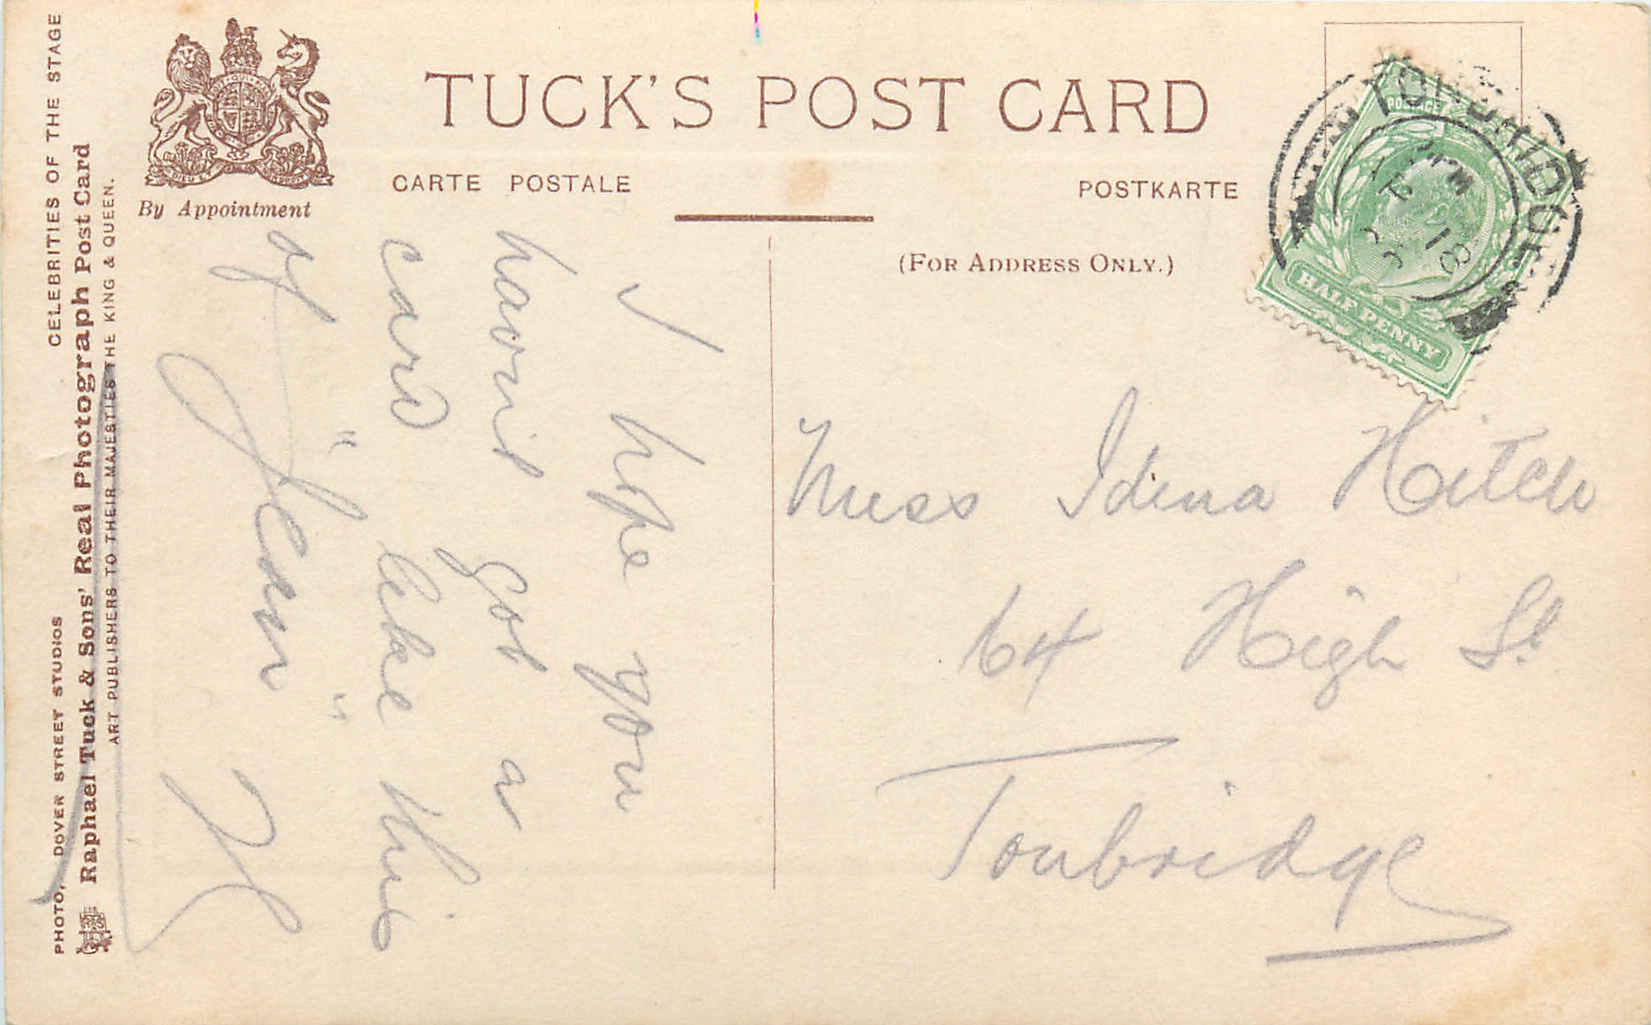 TUCK'S POST CARD
CARTE POSTALE
POSTKARTE
By Appointment
(FOR ADDRESS ONLY.)
CELEBRITIES OF THE STAGE
PHOTO, DOVER STREET STUDIOS
Raphael Tuck & Sons' Real Photograph Post Card
ART PUBLISHERS TO THEIR MAJESTIES THE KING & QUEEN.
POSTAGE
HALF PENNY
I hope you
havnt got a
card like this
of "Jean"
H
Miss Idina Hitch
64 High St
Tonbridge